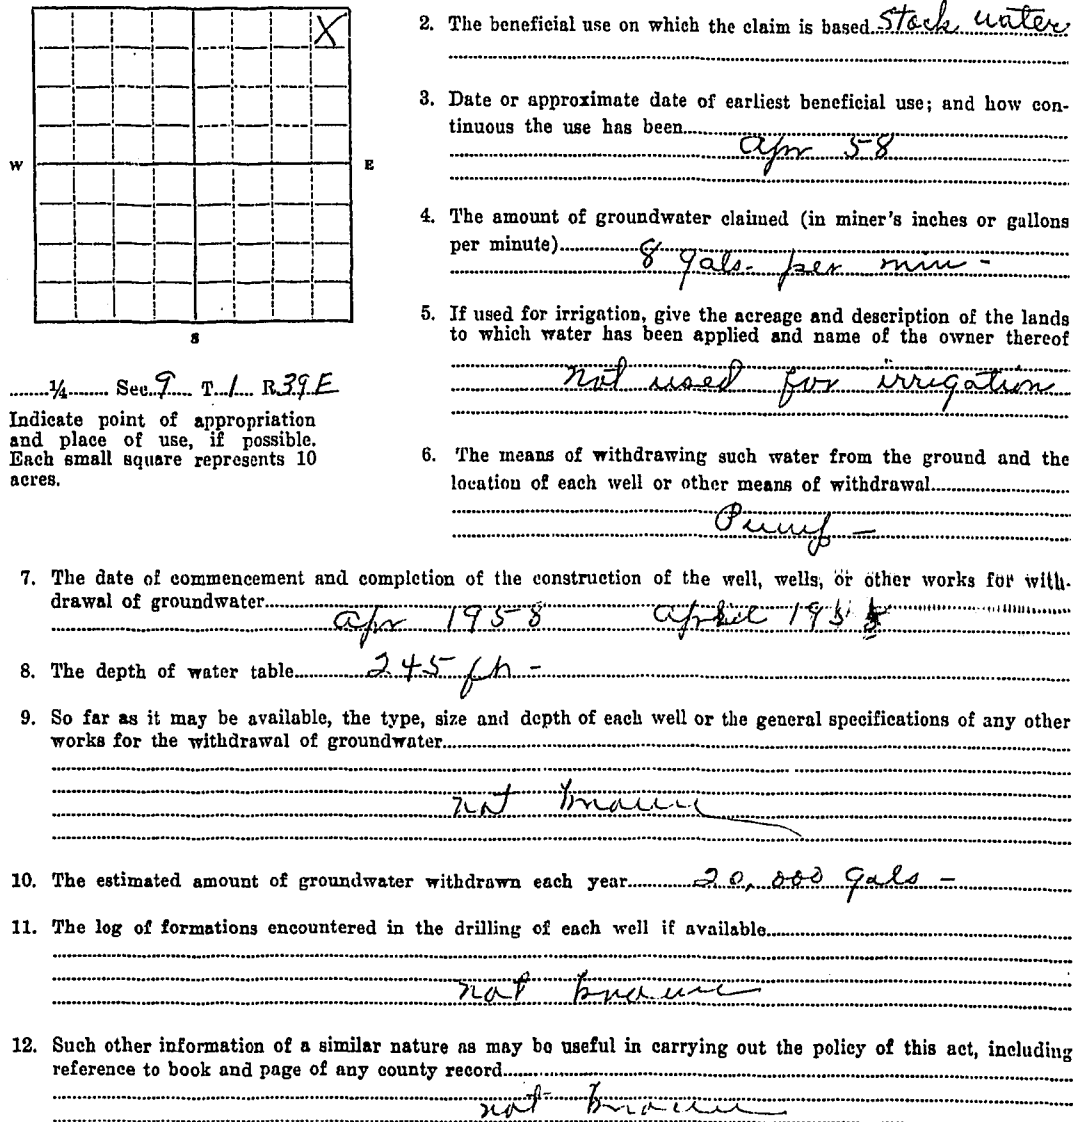 X
W
E
S
¼ Sec. 9 T. 1 R. 39 E
Indicate point of appropriation
and place of use, if possible.
Each small square represents 10
acres.
2. The beneficial use on which the claim is based Stock water
3. Date or approximate date of earliest beneficial use; and how con-
tinuous the use has been
Apr 58
4. The amount of groundwater claimed (in miner's inches or gallons
per minute) 8 gals. per min -
5. If used for irrigation, give the acreage and description of the lands
to which water has been applied and name of the owner thereof
not used for irrigation
6. The means of withdrawing such water from the ground and the
location of each well or other means of withdrawal
Pump -
7. The date of commencement and completion of the construction of the well, wells, or other works for with-
drawal of groundwater
Apr 1958 April
8. The depth of water table 245 -
9. So far as it may be available, the type, size and depth of each well or the general specifications of any other
works for the withdrawal of groundwater
not known
10. The estimated amount of groundwater withdrawn each year 20,000 gals -
11. The log of formations encountered in the drilling of each well if available
not known
12. Such other information of a similar nature as may be useful in carrying out the policy of this act, including
reference to book and page of any county record
not known